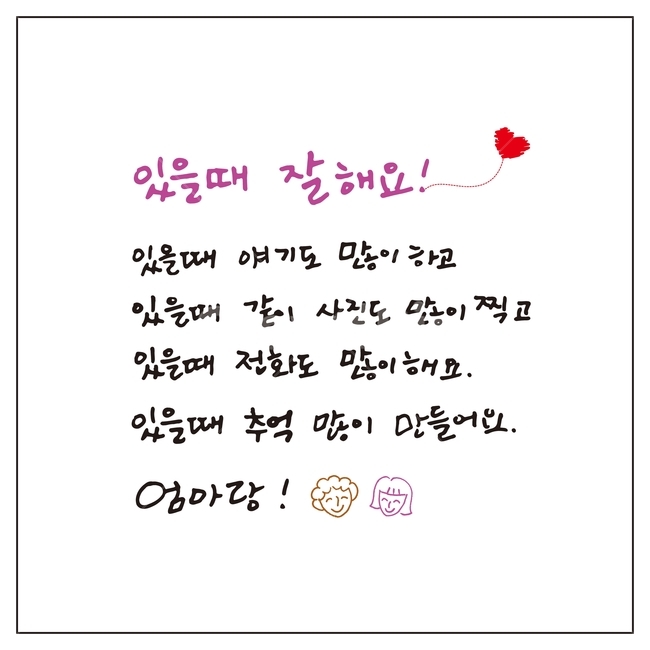 있을때 잘해요!
있을때 얘기도 많이 하고
있을때 같이 사진도 많이 찍고
있을때 전화도 많이해요.
있을때 추억 많이 만들어요.
엄마랑!